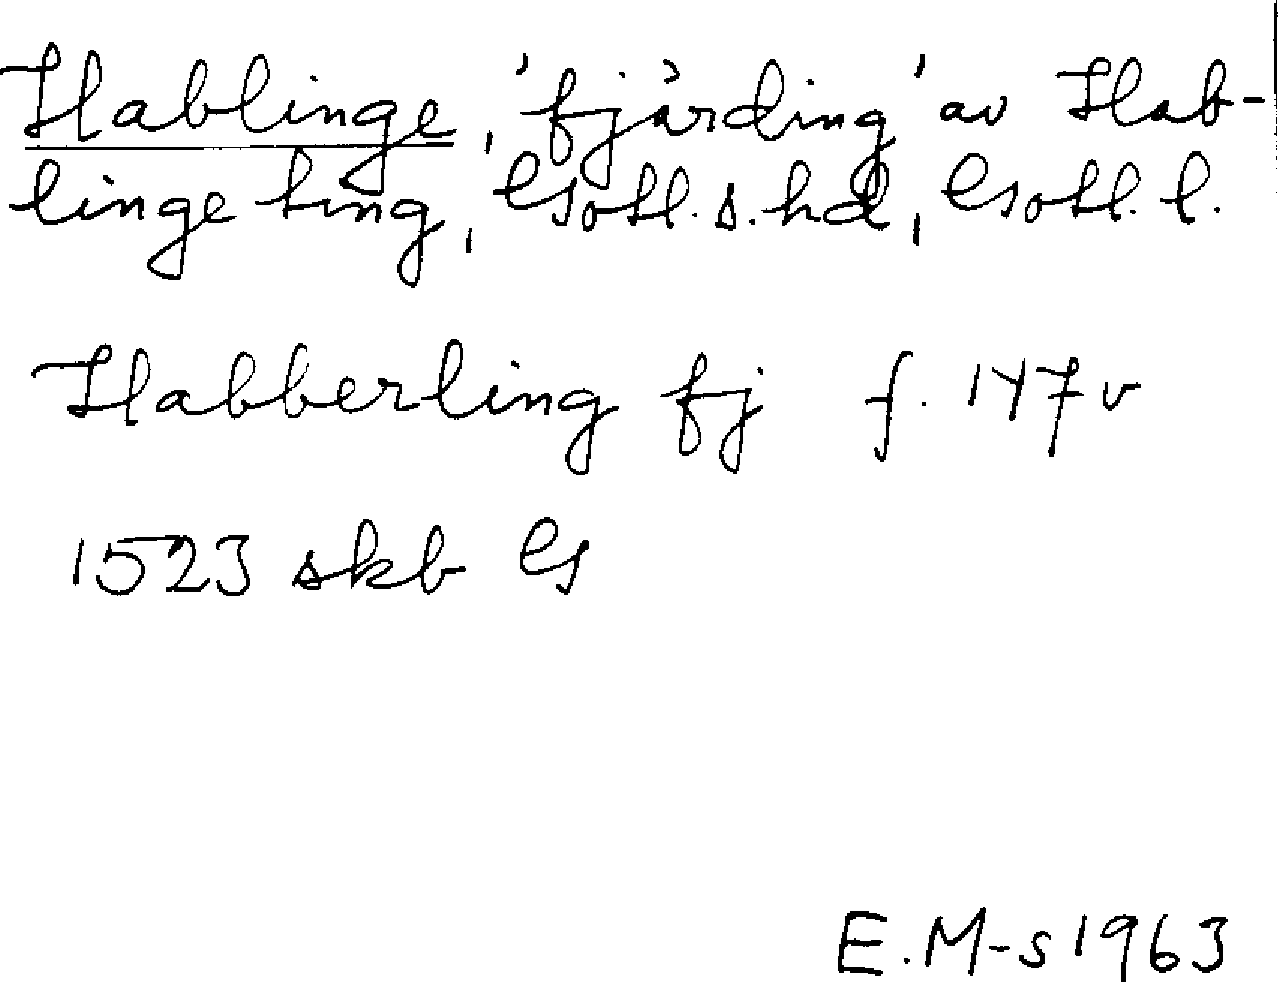 Hablinge, 'fjärding' av Hab-
linge ting, Gotl. s. hd, Gotl. l.
Habberling fj f. 147v
1523 skb G
E. M-s 1963